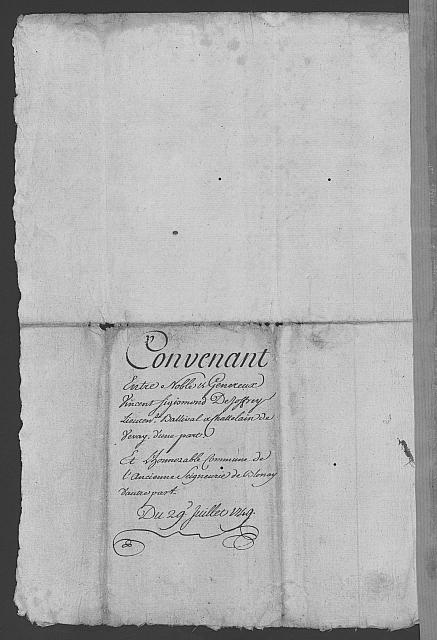 Convenant
Entre Noble & Genereux
Vincent Sigismond De Joffrey
Lieuten.t Ballival & Chattelain de
Vevay, d'une part.
Et L'honnorable Commune de
l'Ancienne Seigneurie de Blonay
d'autre part.
Du 29.e Juillet 1749.